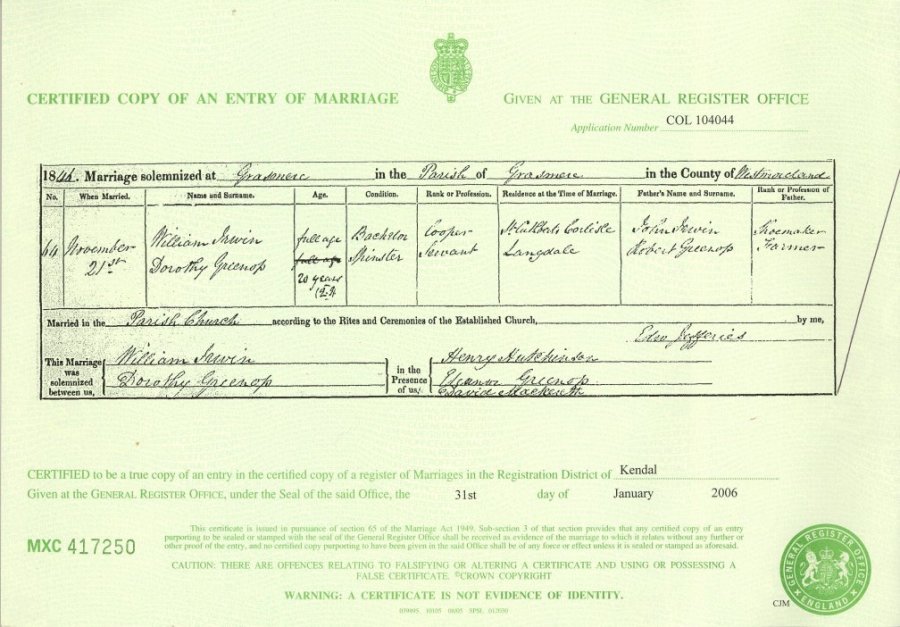 CERTIFIED COPY OF AN ENTRY OF MARRIAGE
GIVEN AT THE GENERAL REGISTER OFFICE
Application Number COL 104044
1846. Marriage solemnized at Grasmere in the Parish of Grasmere in the County of Westmorland
No. When Married. Name and Surname. Age. Condition. Rank or Profession. Residence at the Time of Marriage. Father's Name and Surname. Rank or Profession of Father.
64 November 21st
William Irwin full age Bachelor Cooper Carlisle John Irwin Shoemaker
Dorothy Greenop full age 20 years Spinster Servant Langdale Robert Greenop Farmer
Married in the Parish Church according to the Rites and Ceremonies of the Established Church, by me,
Edw Jefferies
This Marriage was solemnized between us, William Irwin Dorothy Greenop
in the Presence of us, Henry Hutchinson Eleanor Greenop David Mackereth
CERTIFIED to be a true copy of an entry in the certified copy of a register of Marriages in the Registration District of Kendal
Given at the GENERAL REGISTER OFFICE, under the Seal of the said Office, the 31st day of January 2006
MXC 417250
This certificate is issued in pursuance of section 65 of the Marriage Act 1949. Sub-section 3 of that section provides that any certified copy of an entry
purporting to be sealed or stamped with the seal of the General Register Office shall be received as evidence of the marriage to which it relates without any further or
other proof of the entry, and no certified copy purporting to have been given in the said Office shall be of any force or effect unless it is sealed or stamped as aforesaid.
CAUTION: THERE ARE OFFENCES RELATING TO FALSIFYING OR ALTERING A CERTIFICATE AND USING OR POSSESSING A
FALSE CERTIFICATE. ©CROWN COPYRIGHT
WARNING: A CERTIFICATE IS NOT EVIDENCE OF IDENTITY.
CJM
GENERAL REGISTER OFFICE ENGLAND